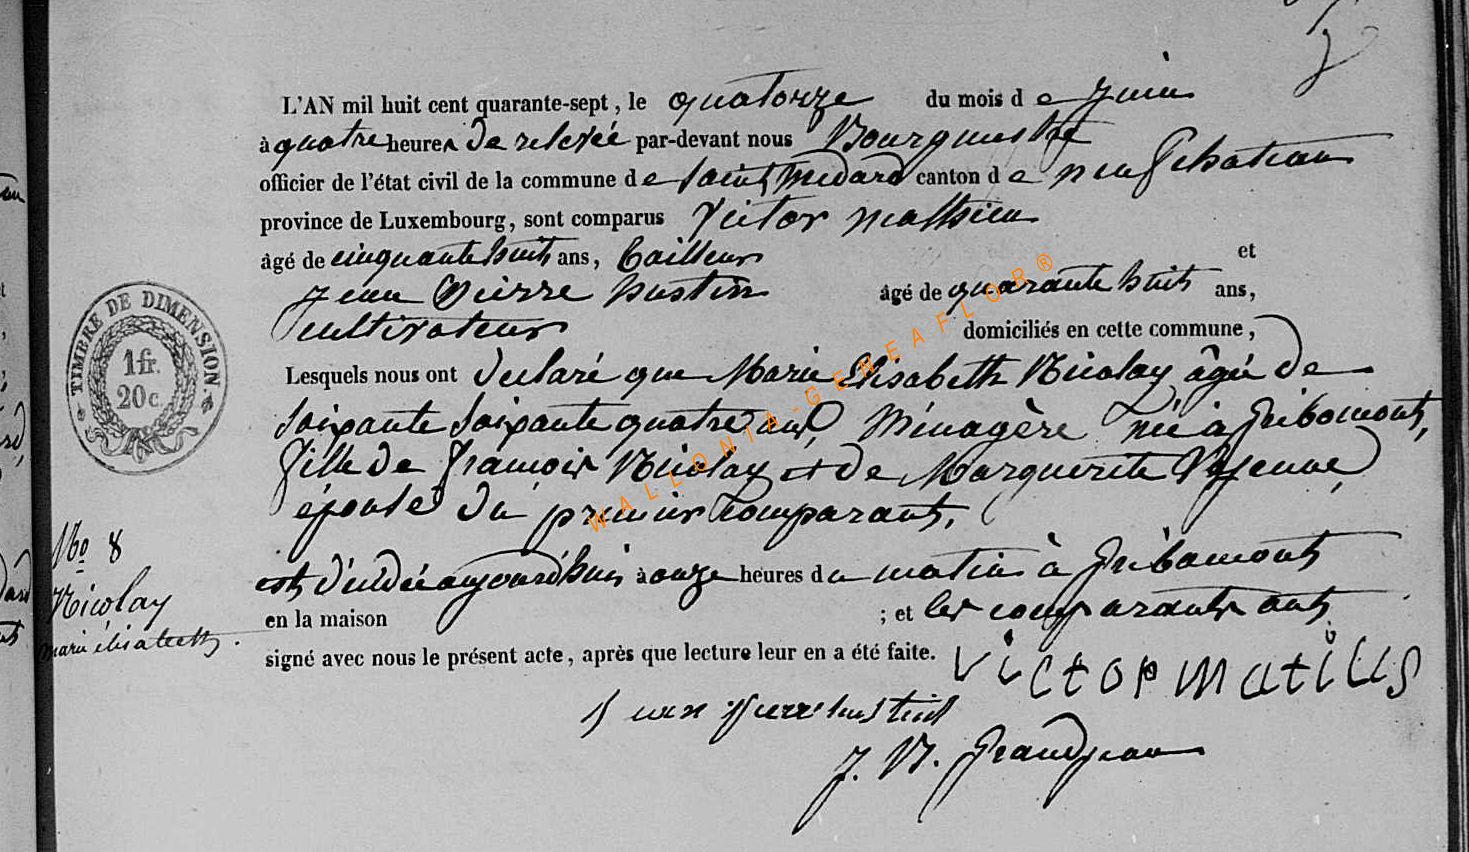 L'AN mil huit cent quarante-sept, le quatorze du mois de juin
à quatre heures de relevée par-devant nous Bourgmestre
officier de l'état civil de la commune de Saint Médard canton de neufchateau
province de Luxembourg, sont comparus Victor Mathieu
âgé de cinquante huit ans, tailleur et
Jean Pierre hustin âgé de quarante huit ans,
cultivateur domiciliés en cette commune,
Lesquels nous ont déclaré que Marie Elisabeth Nicolay âgée de
soixante soixante quatre ans, Ménagère née à gribomont,
fille de françois Nicolay et de Marguerite
épouse du premier comparant,
est décédée aujourd'hui à onze heures du matin à gribomont
en la maison ; et les comparants ont
signé avec nous le présent acte, après que lecture leur en a été faite.
victor matius
J. N. grandjean
No 8
Nicolay
marie élisabeth.
TIMBRE DE DIMENSION
1 fr.
20 c.
WALLONIA-GENEAFLOR®